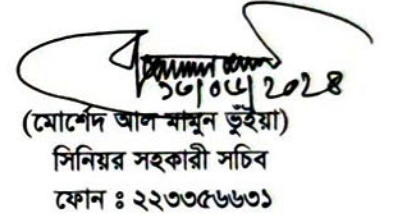 ১৩/০৫/২০২৪
(মোর্শেদ আল মামুন ভূঁইয়া)
সিনিয়র সহকারী সচিব
ফোন ঃ ২২৩৩৫৬৬৩১